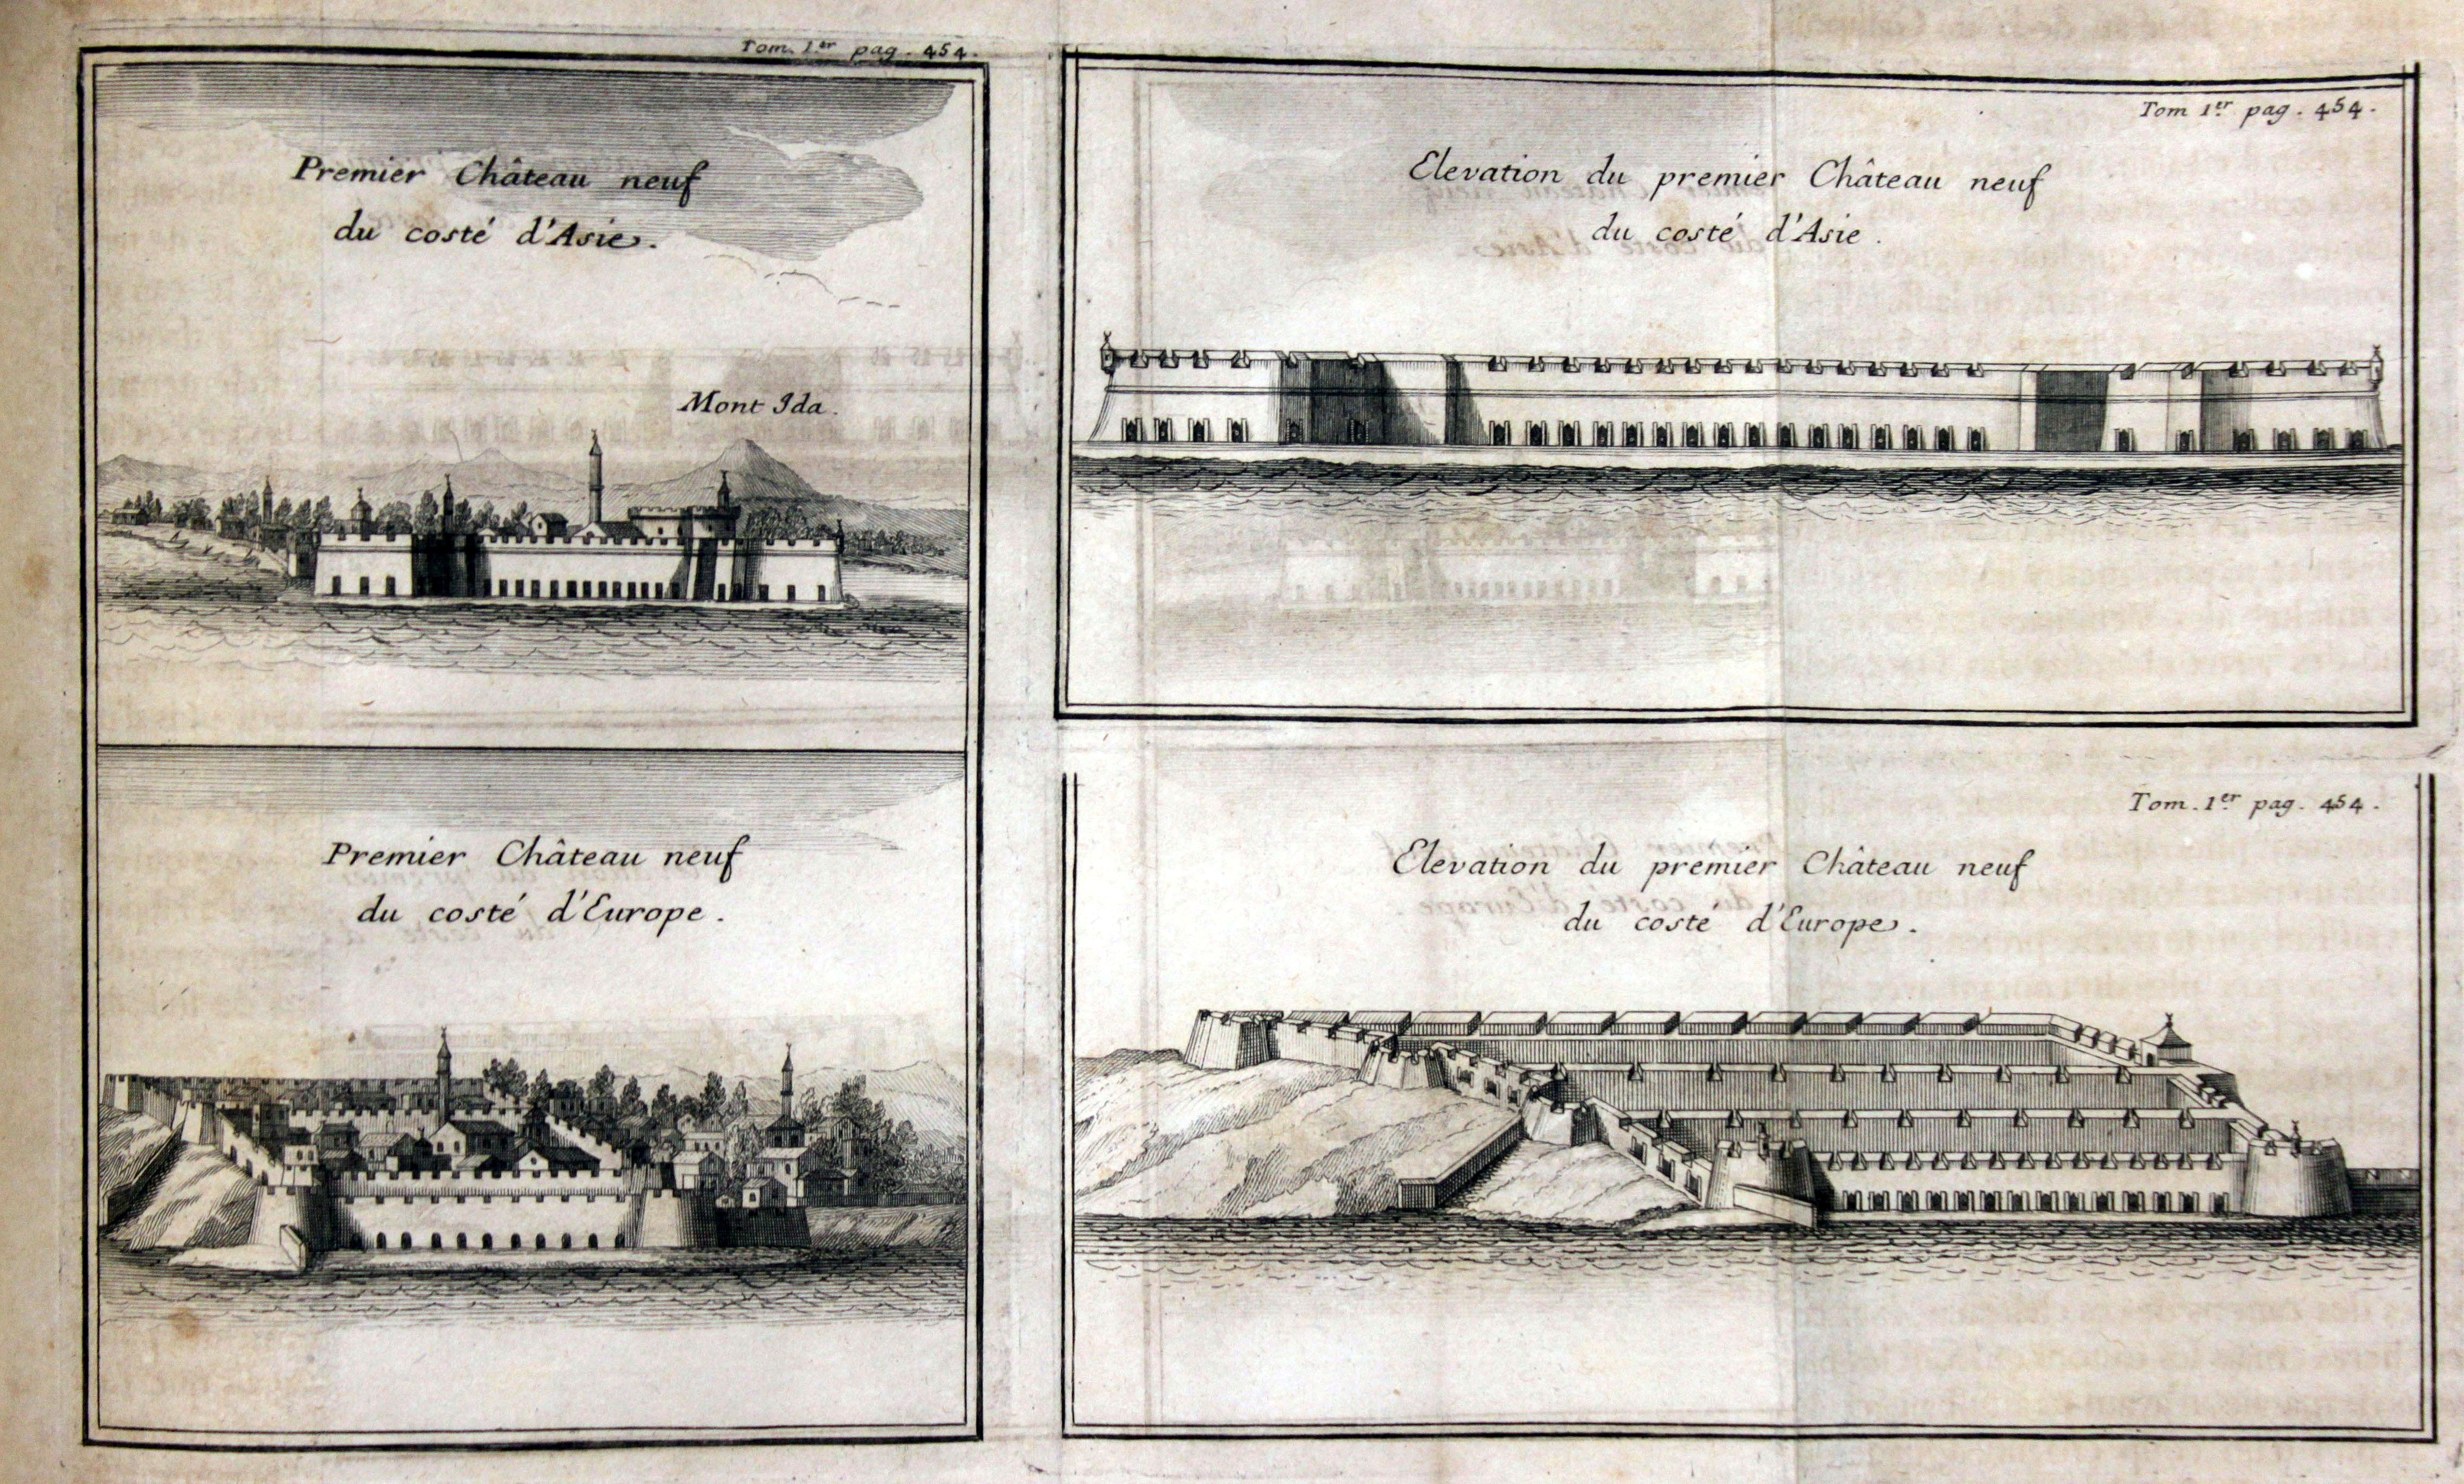 Tom. 1er pag. 454.
Premier Château neuf
du costé d'Asie.
Mont Ida.
Premier Château neuf
du costé d'Europe.
Tom 1er. pag. 454.
Elevation du premier Château neuf
du costé d'Asie.
Tom. 1er. pag. 454.
Elevation du premier Château neuf
du costé d'Europe.